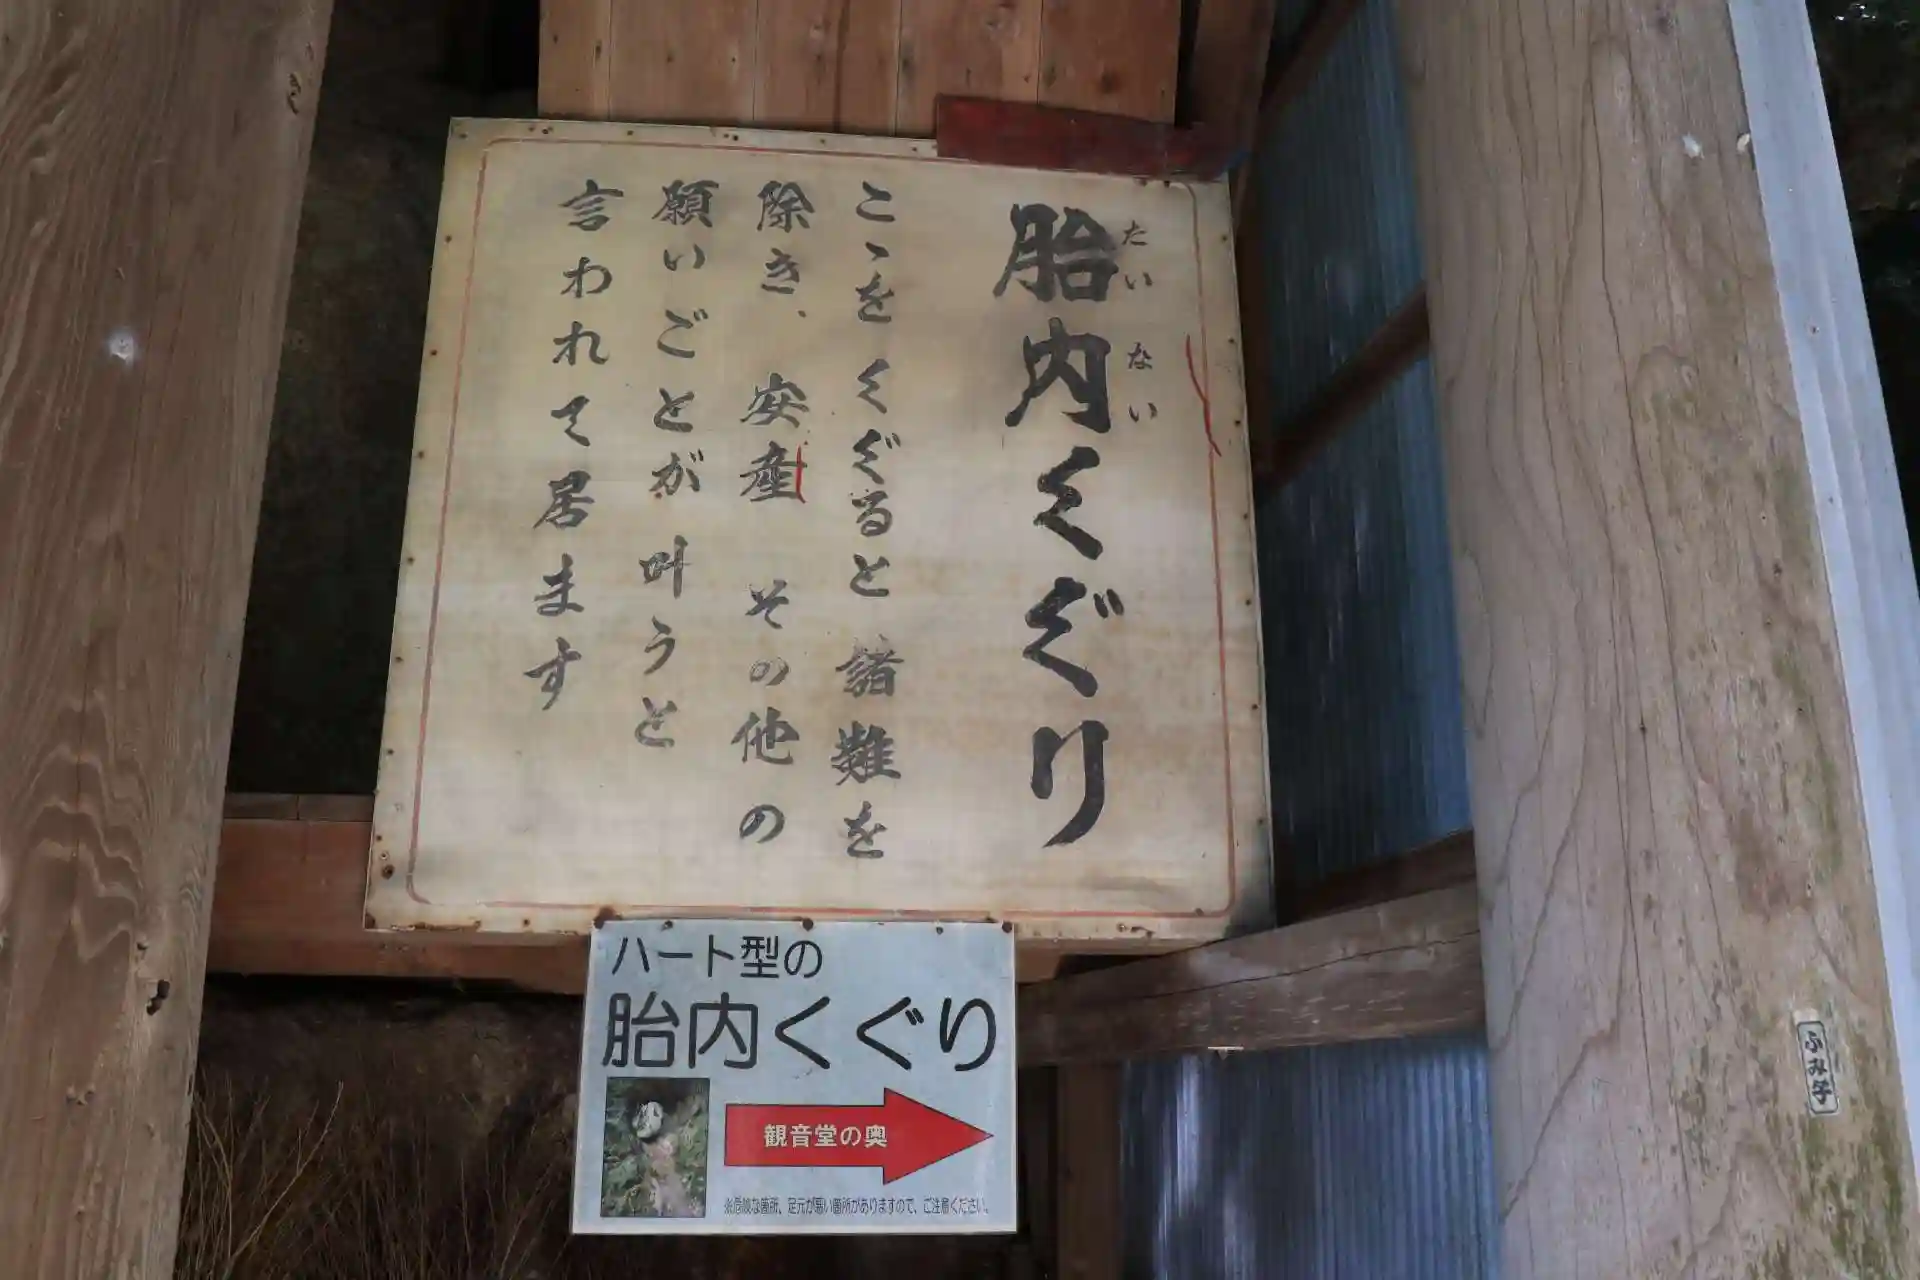 胎内くぐり
たいない
こゝをくぐると諸難を
除き、安産その他の
願いごとが叶うと
言われて居ます
ハート型の
胎内くぐり
観音堂の奥
※危険な箇所、足元が悪い箇所がありますので、ご注意ください。
ふみ子